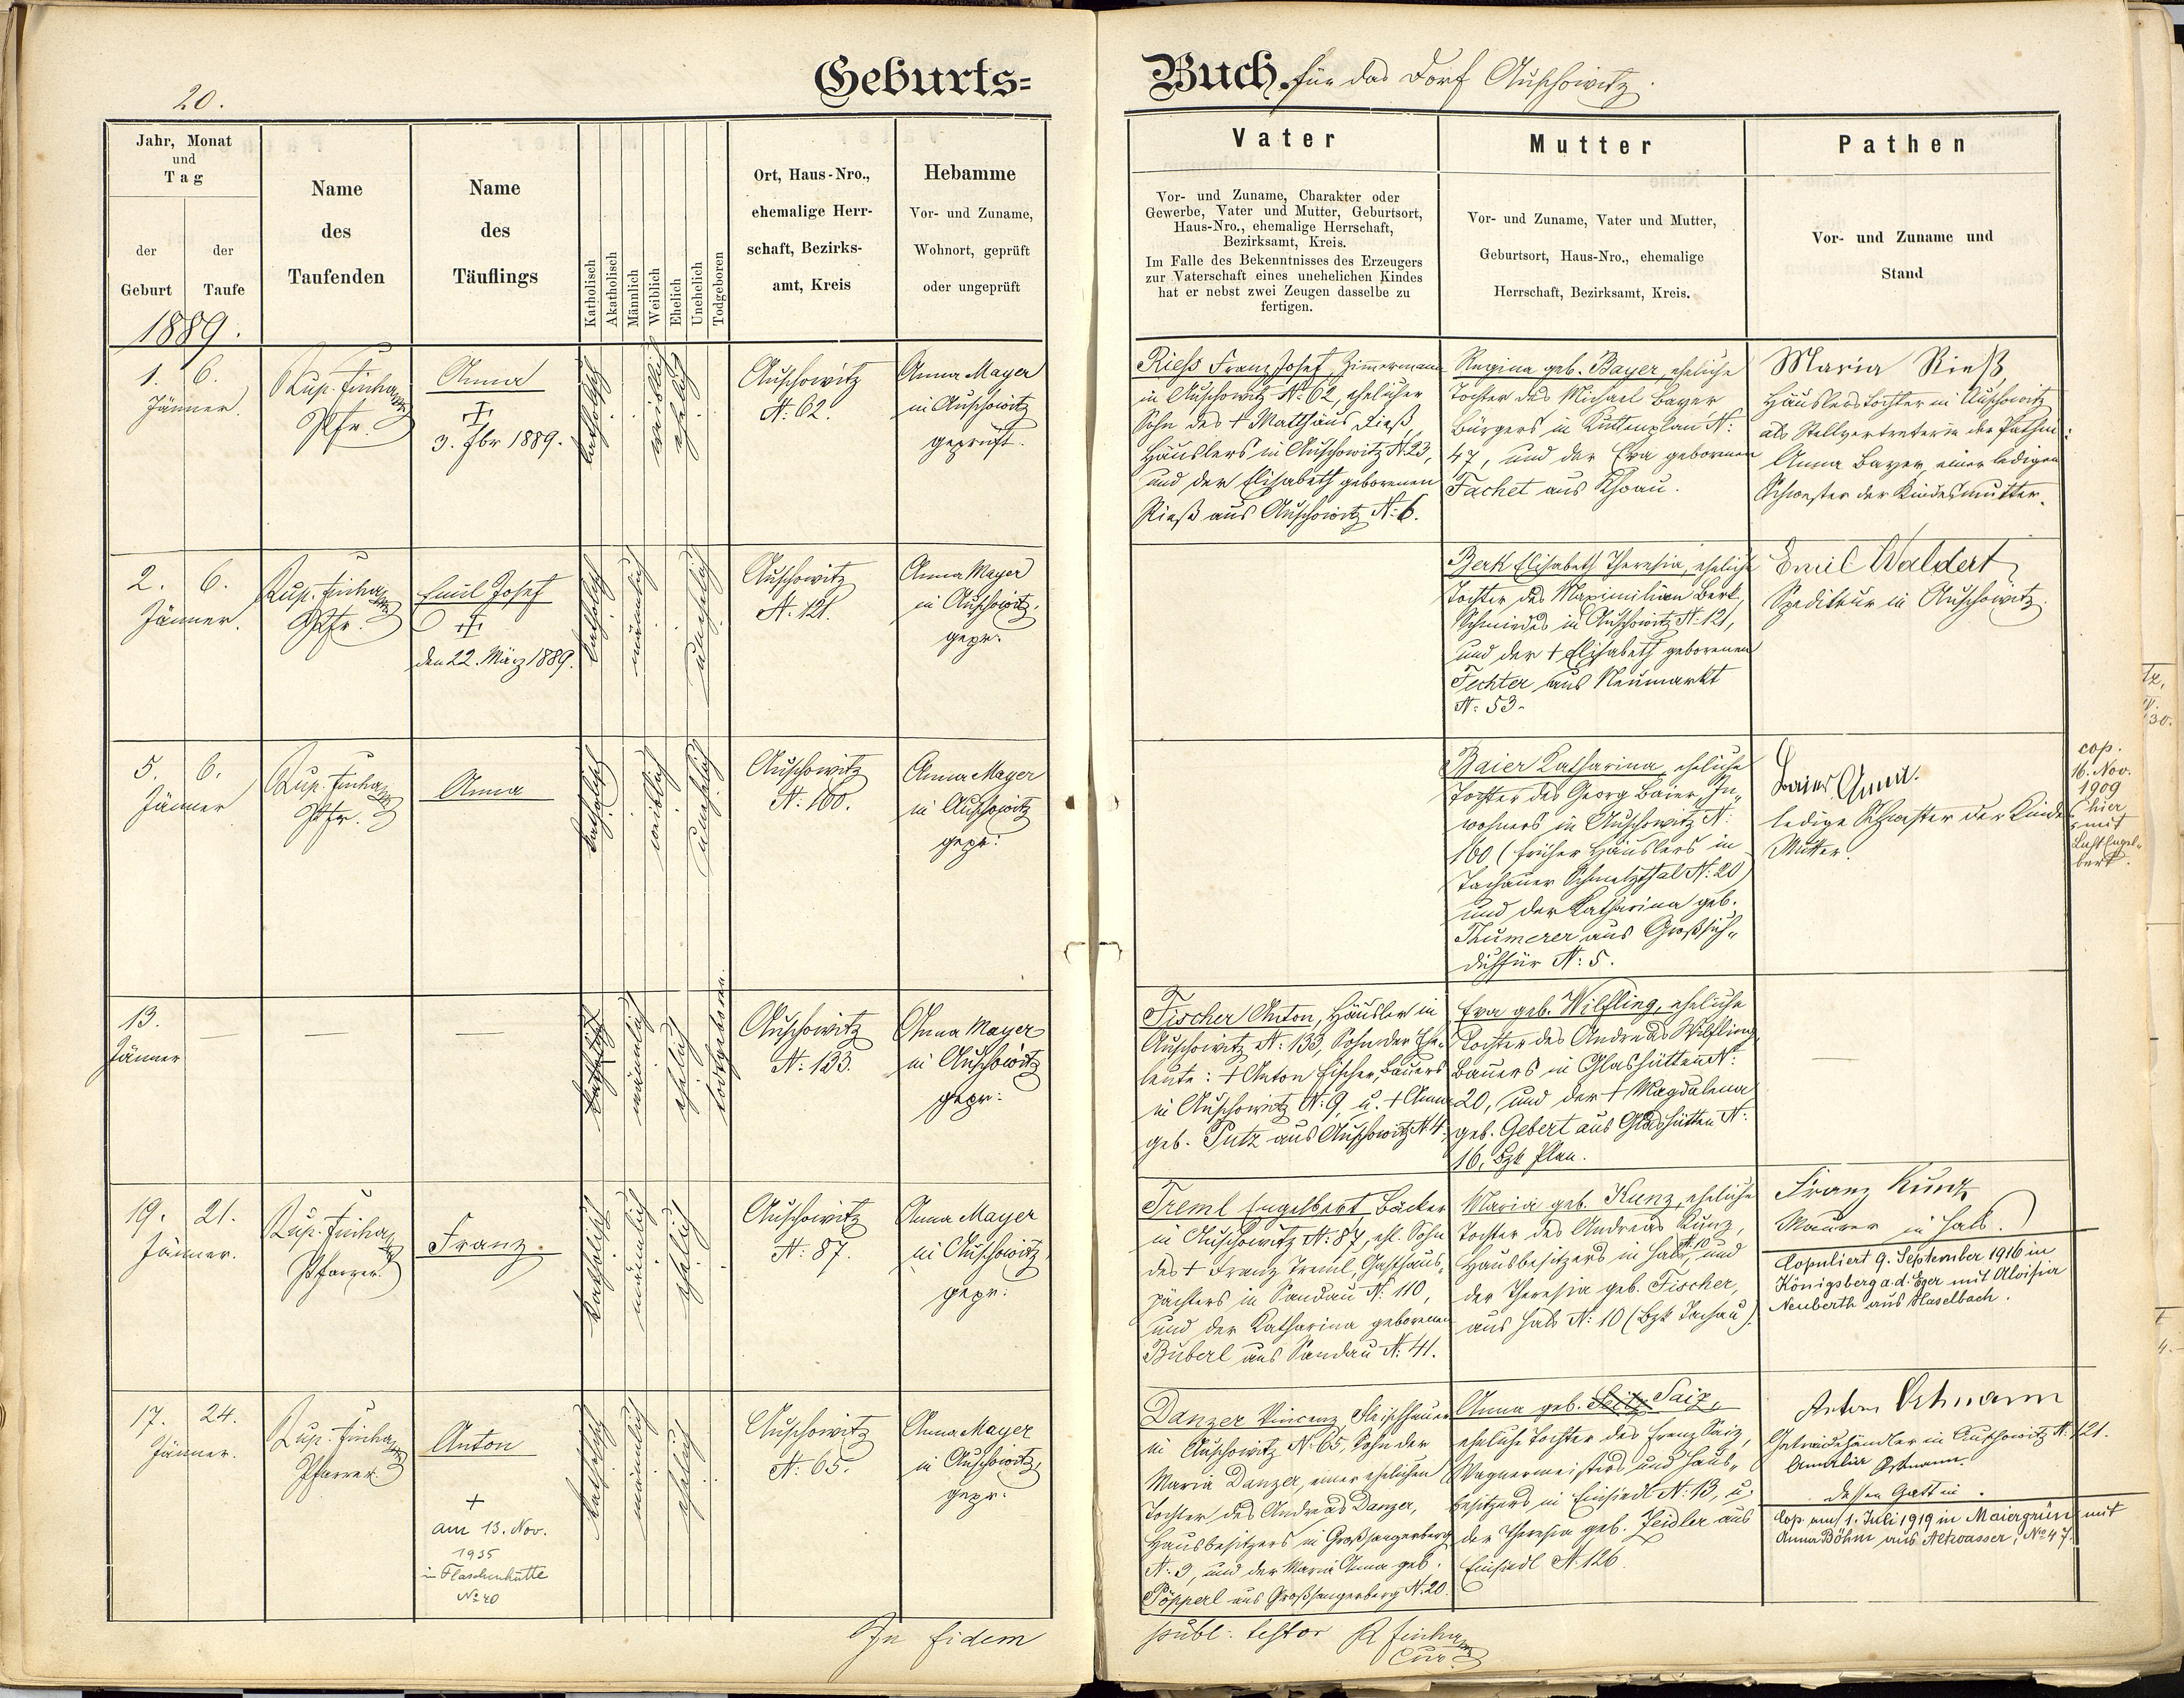 20.
Geburts=
Buch. für das Dorf Auschowitz.
Jahr, Monat
und
Tag
der
Geburt
der
Taufe
1889.
Name
des
Taufenden
Name
des
Täuflings
Katholisch
Akatholisch
Männlich
Weiblich
Ehelich
Unehelich
Todgeboren
Ort, Haus-Nro.,
ehemalige Herr-
schaft, Bezirks-
amt, Kreis
Hebamme
Vor- und Zuname,
Wohnort, geprüft
oder ungeprüft
Vater
Vor- und Zuname, Charakter oder
Gewerbe, Vater und Mutter, Geburtsort,
Haus-Nro., ehemalige Herrschaft,
Bezirksamt, Kreis.
Im Falle des Bekenntnisses des Erzeugers
zur Vaterschaft eines unehelichen Kindes
hat er nebst zwei Zeugen dasselbe zu
fertigen.
Mutter
Vor- und Zuname, Vater und Mutter,
Geburtsort, Haus-Nro., ehemalige
Herrschaft, Bezirksamt, Kreis.
Pathen
Vor- und Zuname und
Stand
1. 6.
Jänner.
Rup.
Pfr.
Anna
3. Fbr 1889.
katholisch
weiblich
ehelich
Auschowitz
N: 62.
Anna Mayer
in Auschowitz
geprüft.
Riess Franz Josef, Zimmermann
in Auschowitz N: 62, ehelicher
Sohn des + Matthäus Rieß,
Häuslers in Auschowitz N: 23,
und der Elisabeth geborenen
Rieß aus Auschowitz N: 6.
Regina geb. Bayer, eheliche
Tochter des Michael Bayer
Bürgers in Kuttenplan N:
47, und der Eva geborenen
Fachet aus
Maria Rieß
Häuslerstochter in Auschowitz
als Stellvertreterin der Pathin:
Anna Bayer, einer ledigen
Schwester der Kindesmutter.
2. 6.
Jänner.
Rup.
Pfr.
Emil Josef
den 22. März 1889.
katholisch
männlich
unehelich
Auschowitz
N. 121.
Anna Mayer
in Auschowitz,
gepr.
Berk Elisabeth Theresia, eheliche
Tochter des Maximilian Berk,
Schmiedes in Auschowitz N: 121,
und der + Elisabeth geborenen
Fechter aus Neumarkt
N: 53.
Emil Waldert
Spediteur in Auschowitz.
5. 6.
Jänner
Rup.
Pfr.
Anna
katholisch
weiblich
unehelich
Auschowitz
N: 160.
Anna Mayer
in Auschowitz
gepr:
Baier Katharina, eheliche
Tochter des Georg Baier, In-
wohners in Auschowitz N:
160 (früher Häuslers in
Tachauer Schmelzthal N: 20)
und der Katharina geb.
Thumerer aus
N: 5.
Baier Anna.
ledige Schwester der Kindes
Mutter.
cop.
16. Nov.
1909
hier
mit
Lust Engel-
bert.
13.
Jänner
katholisch
männlich
ehelich
todtgeboren.
Auschowitz
N: 133.
Anna Mayer
in Auschowitz
gepr:
Fischer Anton, Häusler in
Auschowitz N: 133, Sohn der Ehe-
leute: + Anton Fischer, Bauers
in Auschowitz N: 9, u. + Anna
geb. Putz aus Auschowitz N 4.
Eva geb. Wilfling, eheliche
Tochter des Andreas Wilfling,
Bauers in Glashütten N:
20, und der + Magdalena
geb. Gebert aus Glashütten N:
16, Bzk Plan.
19. 21.
Jänner.
Rup.
Pfarrer.
Franz.
katholisch
männlich
ehelich
Auschowitz
N: 87.
Anna Mayer
in Auschowitz,
gepr:
Treml Engelbert Bäcker
in Auschowitz N: 87, ehl. Sohn
des + Franz Treml, Gasthaus-
pächters in Sandau N: 110,
und der Katharina geborenen
Buberl aus Sandau N: 41.
Maria geb. Kunz, eheliche
Tochter des Andreas Kunz,
Hausbesitzers in Hals N: 10 und
der Theresia geb. Fischer,
aus Hals N: 10 (Bzk Tachau).
Franz Kunz
Maurer in Hals.
Copuliert 9. September 1916 in
Königsberg a.d. Eger mit Aloisia
Neuberth aus Haselbach.
17. 24.
Jänner.
Rup.
Pfarrer.
Anton
+
am 13. Nov.
1935
in Flaschenhütte
No 40
katholisch
männlich
ehelich
Auschowitz
N: 65.
Anna Mayer
in Auschowitz,
gepr:
Danzer Vincenz, Fleischhauer
in Auschowitz N: 65, Sohn der
Maria Danzer, einer ehelichen
Tochter des Andreas Danzer,
Hausbesitzers in Großsangerberg
N: 3, und der Maria Anna geb.
Pöpperl aus Großsangerberg N: 20.
Anna geb. Seitz Saiz,
eheliche Tochter des Franz Saiz,
Wagnermeisters und Haus-
besitzers in Einsiedl N: 13, u.
der Theresia geb. Zeidler aus
Einsiedl N 126.
Anton Ortmann
Getreidehändler in Auschowitz N. 121.
Amalia Ortmann
dessen Gattin.
Cop. am 1. Juli 1919 in Maiergrün mit
Anna Böhm aus Altwasser, No 47.
In fidem
publ: testor